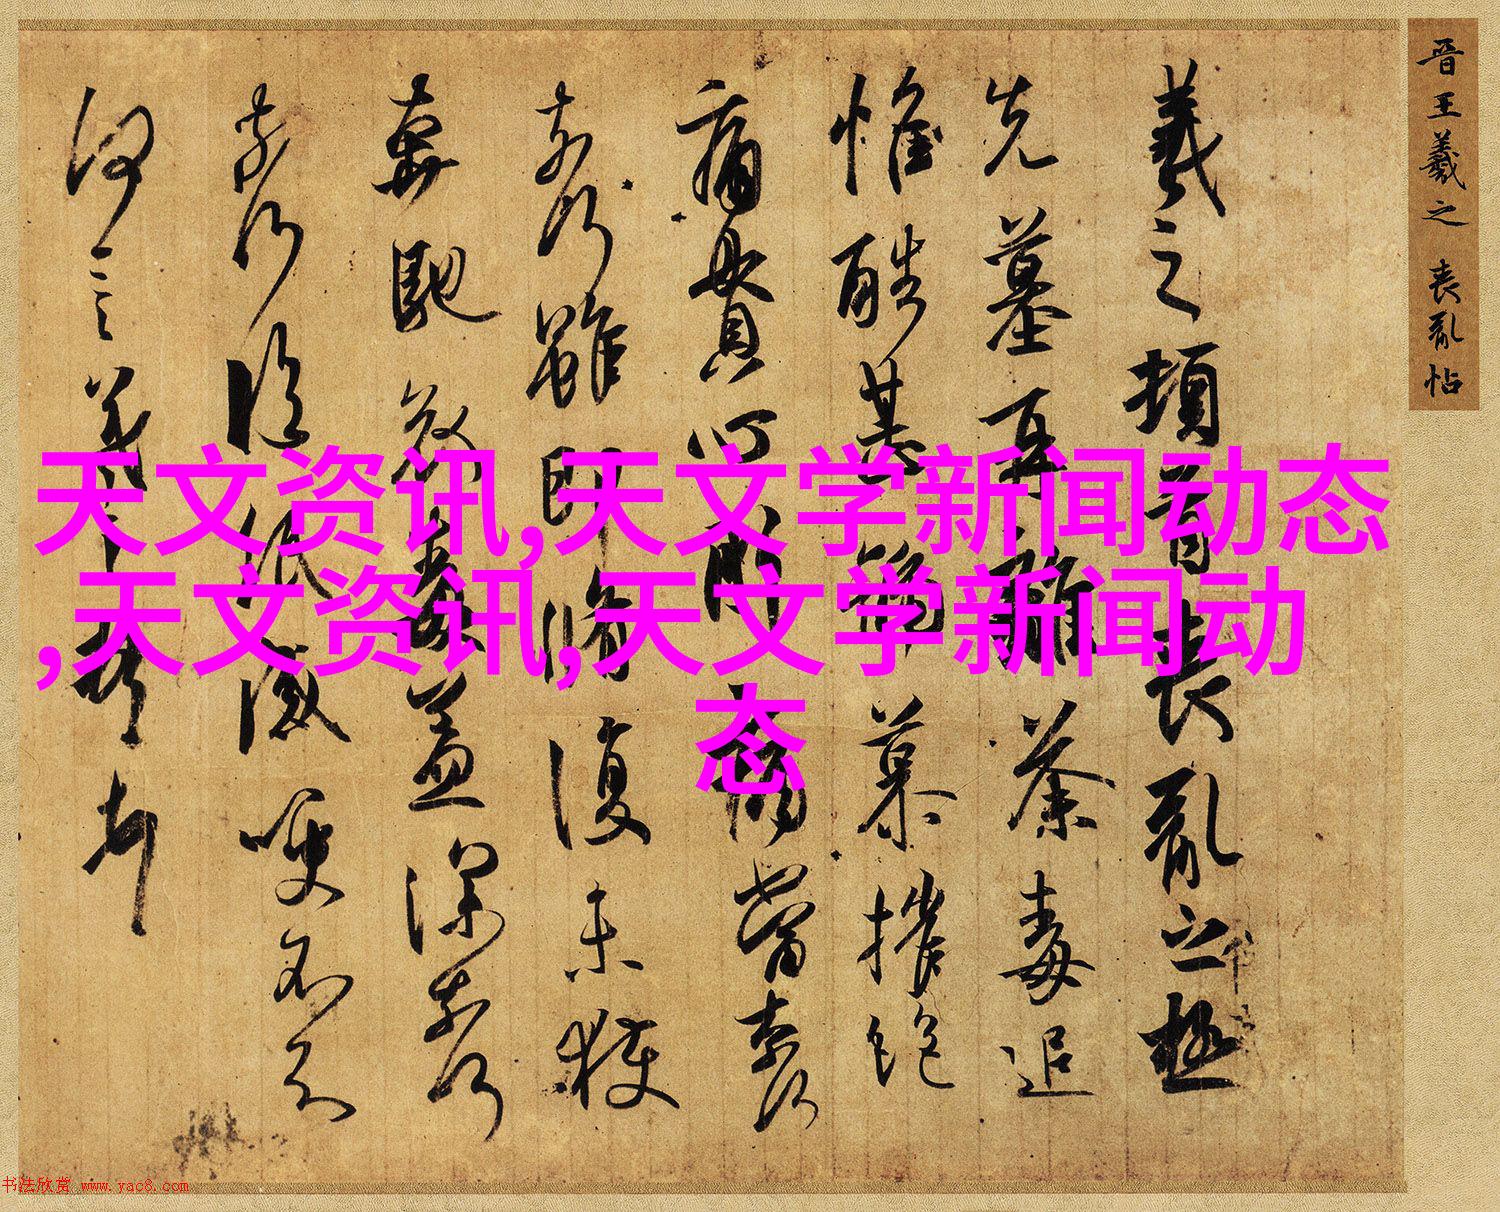 晋王羲之 喪亂帖
羲之頓首喪亂之極
先墓再離荼毒追
惟酷甚號慕摧絕
痛貫心肝痛當奈何
奈何雖即脩復未獲
奔馳哀毒益深奈何
奈何臨紙感哽不知
何言羲之頓首頓首
天文资讯,天文学新闻动态
,天文资讯,天文学新闻动
态
书法欣赏 www.yac8.com